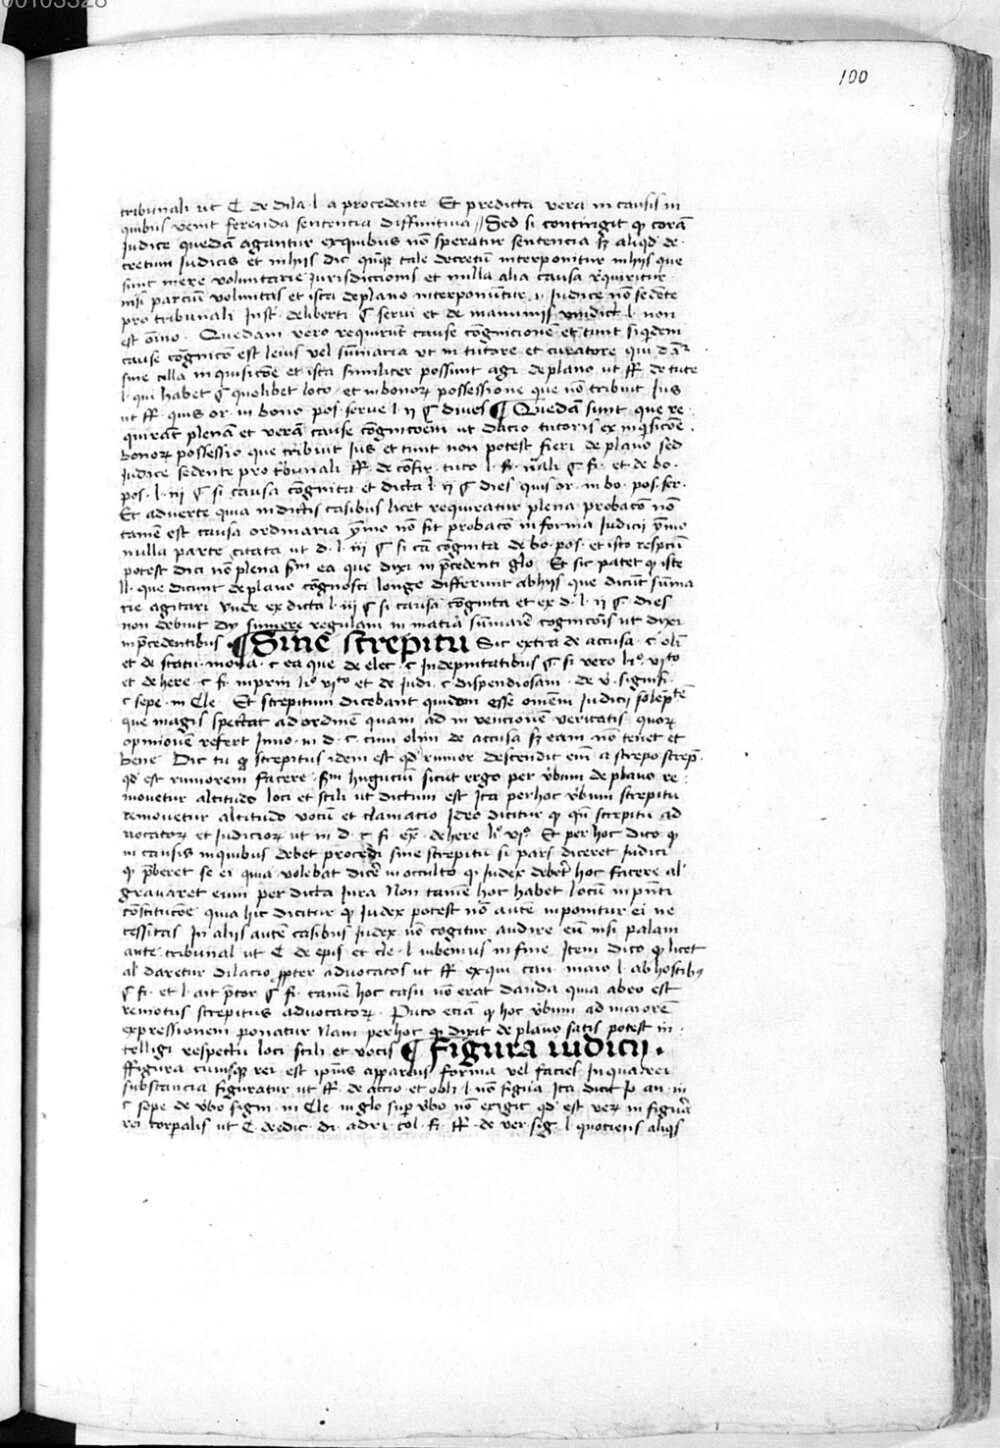 00103328
100
tribunali ut C de dila · l · a procedente Et predicta vera in causis in
quibus venit ferenda sentencia diffinitiva // Sed si contingit q corā
Iudice quedā agantur exquibus nō speratur sentencia sz aliqd de ·
cretum Iudicis et inhijs dic tale decretū interponitur inhijs que
sunt mere voluntarie Iurisdiccionis et nulla alia causa rquiritur
nisi parciū voluntas et ista deplano interponūtur · i · Iudice nō sedēte
pro tribunali Inst' deliberti ¶ servi et de manumis vindict · l · non
est oīno · Quedam vero requirūt cause cōgnicionē et tunt siqdem
cause cōgnicō est levis vel sūmaria ut in tutore et curatore qui dāt'
sine illa inquisicōe et ista similiter possunt agi deplano ut ff de tute
l · qui habet ¶ quolibet loco · et inbonorꝝ possessione que nō tribuit Ius
ut ff quis or · in bono pos · serve · l · ij ¶ dives ¶ Quedā sunt que re ·
quirāt plenā et verā cause cōgnicōem ut dacio tutoris ex inqsicōe
bonorꝝ possessio que tribuit Ius et tunt non potest fieri deplano sed
Iudice sedente pro tribunali ff de cōfir · tuto · l · fi · ¶ fi · et de bo ·
pos · l · iij ¶ si causa cōgnita et dicta l · ij ¶ dies quis or · in bo · pos · ser ·
Et adverte quia indictis casibus licet requiratur plena probacō nō
tamē est causa ordinaria ymo nō fit probacō in forma Iudicij ymo
nulla parte citata ut d · l · iij ¶ si cā cōgnita de bo · pos · et isto respcū
potest dici nō plena scdm ea que dixi in pcedenti glo Et sic patet q iste
ll · que dicunt deplano cōgnosci longe differunt abhijs que dicūt sūma
rie agitari vnde ex dicta l · iij ¶ si causa cōgnita et ex d · l · ij ¶ dies
non debuit dy sumere regulam in matia sūmarie cognicōis ut dixi
in pcedentibus · ¶ Sine strepitu Sic extra de accusa · c · oli
et de statu mona · c ea que de elec · c Indepnitatibus ¶ si vero li° vi to
et de here · c · fi · inprin li° vi to et de Iudi · c dispendiosam · de v · signifi ·
c sepe · in Cle · Et strepitum dicebant quidem esse omnem Iudicij solepte
que magis spectat adordinē quam ad in vencionē veritatis quorꝝ
opinionē refert Inno · in d · c · cum olim de accusa sz eam nō tenet et
bene Dic tu q strepitus idem est qd rumor descendit em a strepo strepis
qd est rumorem facere · scdm hugucium sicut ergo per vbum deplano re ·
movetur altitudo loci et stili ut dictum est Ita perhoc vbum strepitu
removetur altitudo vocū et clamacio Ideo dicitur q qn strepitu ad
vocatorꝝ et Iudiciorꝝ ut in d · c · fi · ex · dehere li° vi° Et per hoc dico q
in causis inquibus debet procedi sine strepitu si pars diceret Iudici
q pberet se ei quia volebat dice in occulto q Iudex deberet hoc facere al'
gravaret eum per dicta Iura Non tamē hoc habet locū in pnti
cōstitucōe quia hic dicitur q Iudex potest nō autē inponitur ei ne
cessitas In alijs autē casibus Iudex nō cogitur audire eū nisi palam
ante tribunal ut C de epis et cle · l · iubemus in fine Item dico q licet
al' daretur dilacio propter advocatos ut ff exqui cau · maio l · ab hostib3
¶ fi · et l · ait pretor ¶ fi · tamē hoc casu nō erat danda quia abeo est
remotus strepitus advocatorꝝ · Puto eciā q hoc vbum ad maiorē
expressionem ponatur Nam perhoc q dixit deplano satis potest in ·
telligi respectu loci stili et vocis ¶ Figura iudicij ·
Ffigura cuiusq rei est ipius apparens forma vel facies Inquā rei
substancia figuratur ut ff de accio · et obli l · nō figura Ita dicit Jo · an · in
c sepe de vbo signi · in Cle in glo sup vbo nō exigit qd est verꝝ in figura
rei corpalis ut C · de edic · di · adri · tol · fi · ff · de ver · sig · l · quociens aliqs